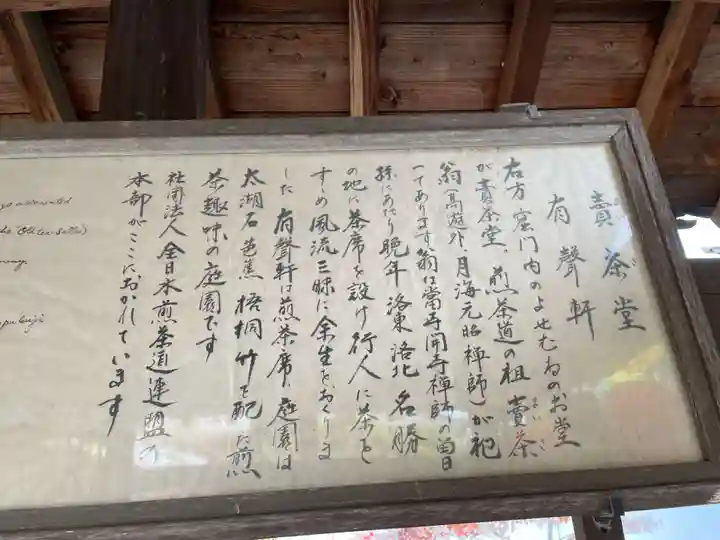 賣茶堂
有聲軒
右方窟門内のよせむねのお堂
が賣茶堂、煎茶道の祖賣茶
まいさ
翁(高遊外、月海元昭禅師)が祀
ってあります 翁は當寺開寺禅師の曽
孫にあたり晩年 洛東 洛北 名勝
の地に茶席を設け行人に茶を
すすめ風流三昧に余生をおくりま
した 有聲軒は煎茶席、庭園は
太湖石 芭蕉 梧桐 竹を配した煎
茶趣味の庭園です
社団法人 全日本煎茶道連盟の
本部がここにおかれています